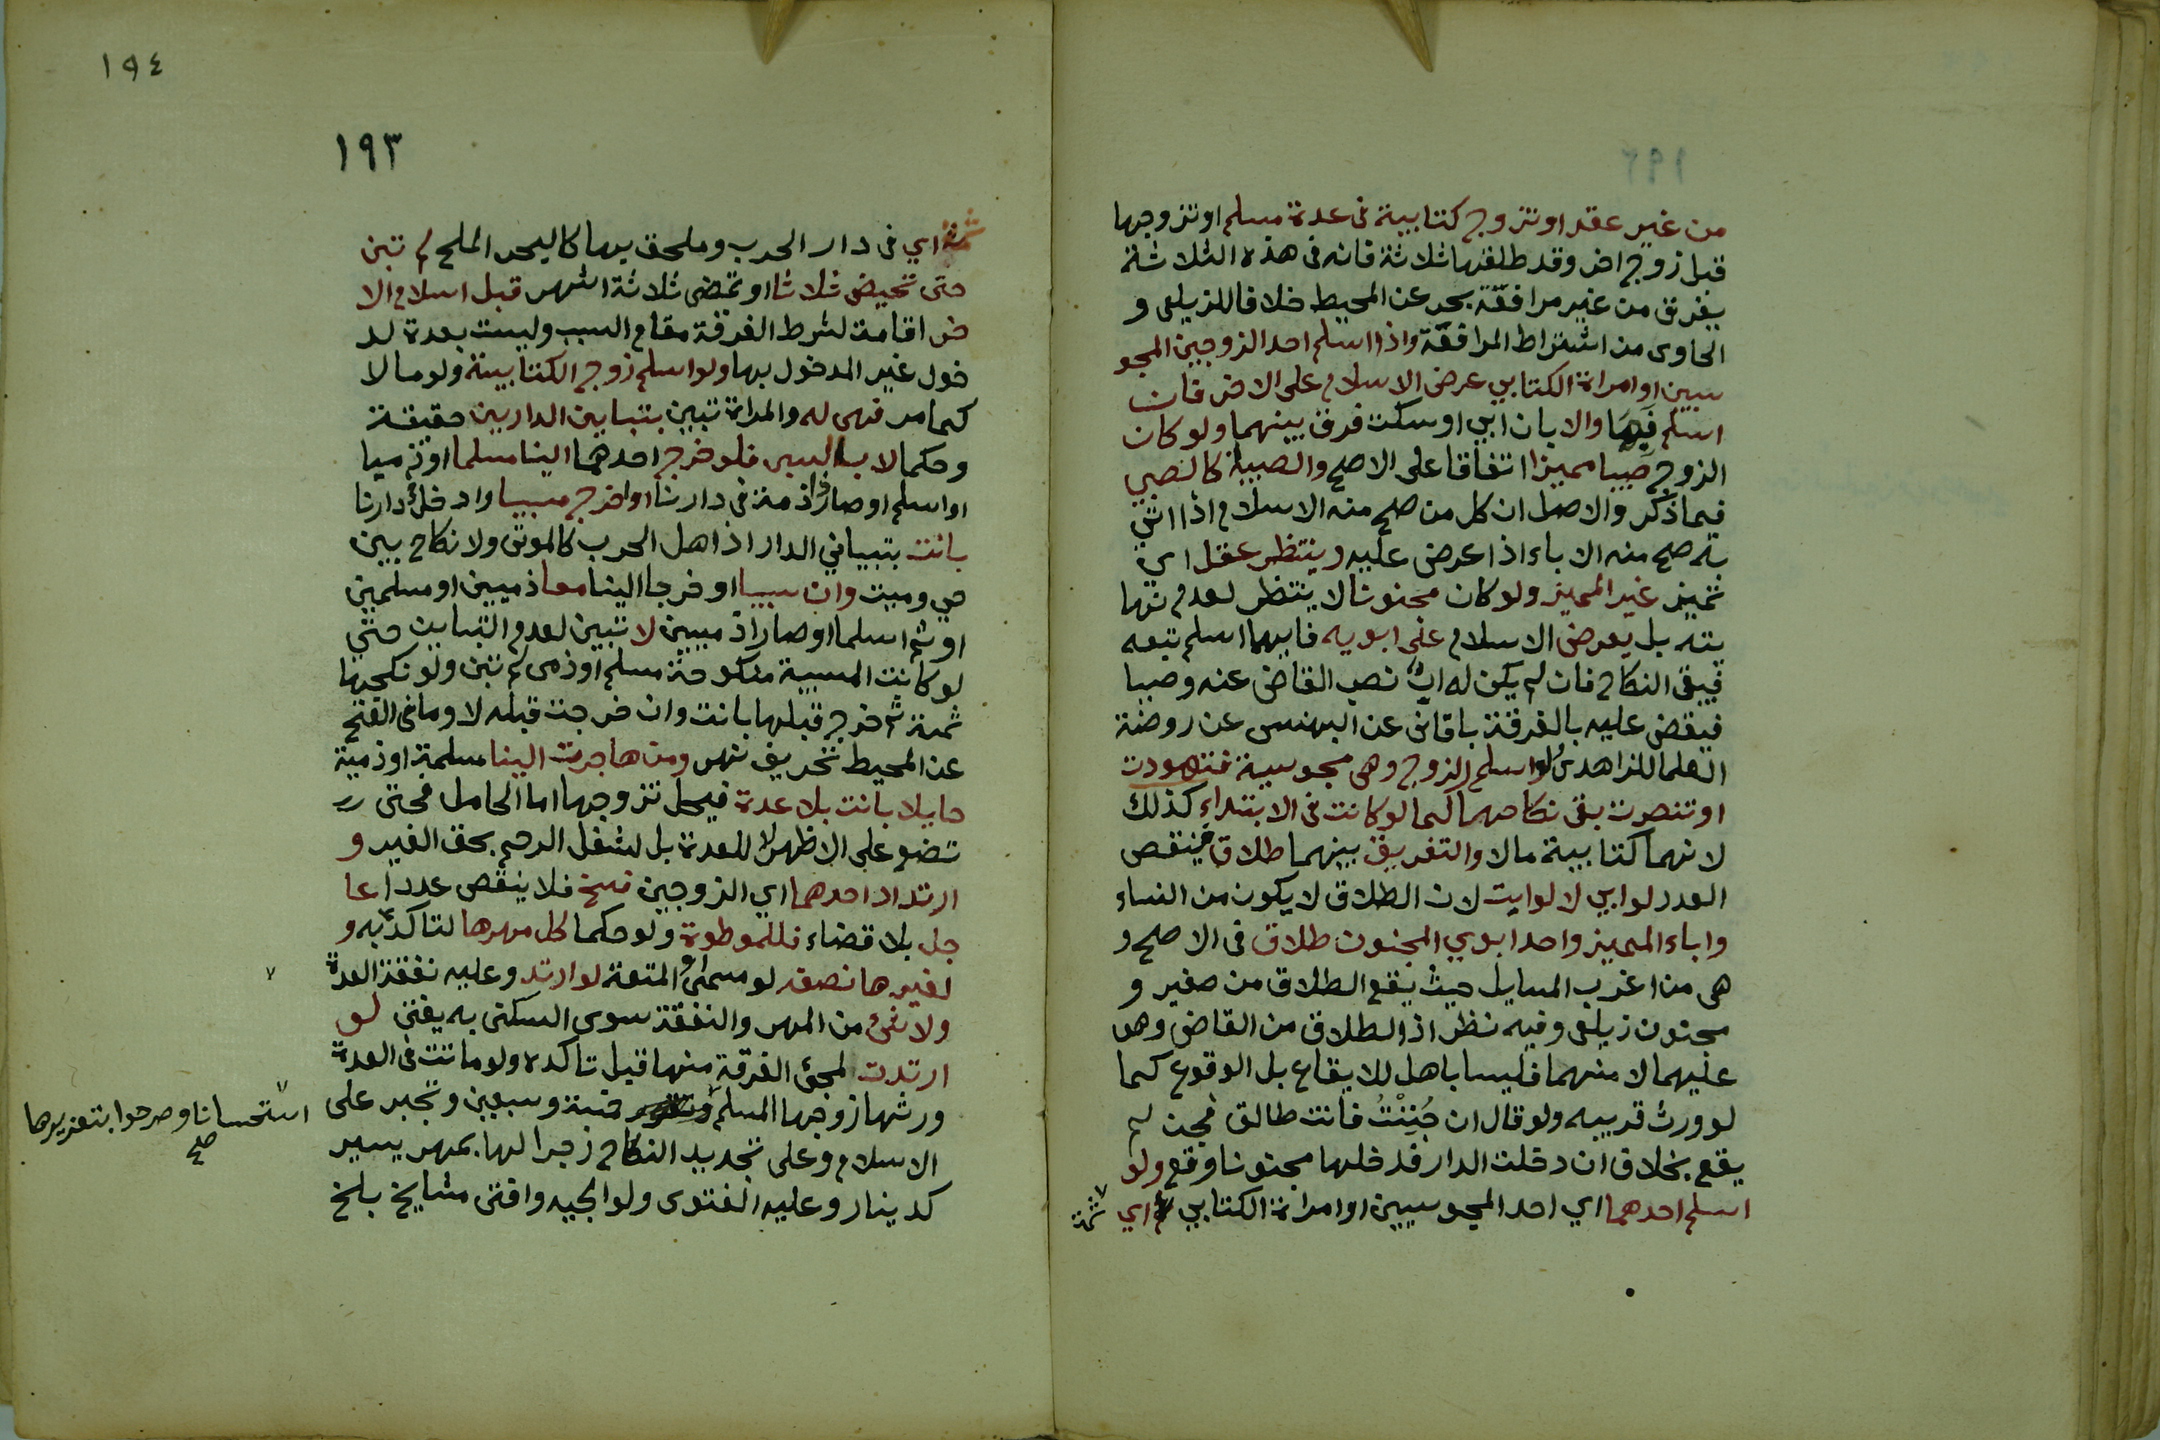 من غير عقد او تزوج كتابية فى عدة مسلم او تزوجها
قبل زوج اخر وقد طلقها ثلاثة فانه فى هذه الثلاثة
يفرق من غير مرافقة بحر عن المحيط خلافا للزيلعى و
الحاوى من اشتراط المرافقة واذا اسلم احد الزوجين المجو
سيين او امراة الكتابي عرض الاسلام على الاخر فان
اسلم فبها والا بان ابي او سكت فرق بينهما ولو كان
الزوج صبيا مميزا اتفاقا على الاصح والصبية كالصبي
فيما ذكر والاصل ان كل من صح منه الاسلام اذا اتي
به صح منه الاباء اذا عرض عليه وينتظر عقل اي
تمييز غير المميز ولو كان مجنونا لا ينتظر لعدم نها
يته بل يعرض الاسلام على ابويه فايهما اسلم تبعه
فيبقى النكاح فان لم يكن له اب نصب القاضى عنه وصيا
فيقضى عليه بالفرقة باقانى عن البهنسى عن روضة
العلما للزاهدى ولو اسلم الزوج وهى مجوسية فتهودت
او تنصرت بقى نكاحهما كما لو كانت فى الابتداء كذلك
لانهما كتابية مالا والتفريق بينهما طلاق فينقص
العدد لو ابي لا لو ابت لان الطلاق لا يكون من النساء
واباء المميز واحد ابوي المجنون طلاق فى الاصح و
هى من اغرب المسايل حيث يقع الطلاق من صغير و
مجنون زيلعى وفيه نظر اذ الطلاق من القاضى وهو
عليهما لا منهما فليسا باهل للايقاع بل الوقوع كما
لو ورث قريبه ولو قال ان جُنِنْتُ فانت طالق فجن لم
يقع بخلاف ان دخلت الدار فدخلها مجنونا وقع ولو
اسلم احدهما اي احد المجوسيين او امراة الكتابي اي
ثمة
١٩٤
١٩٣
ثمة اي فى دار الحرب وملحق بها كالبحر الملح لم تبن
حتى تحيض ثلاثا او تمضى ثلاثة اشهر قبل اسلام الا
خر اقامة لشرط الفرقة مقام السبب وليست بعدة لد
خول غير المدخول بها ولو اسلم زوج الكتابية ولو مالا
كما مر فهى له والمراة تبين بتباين الدارين حقيقة
وحكما لا بالسبى فلو خرج احدهما الينا مسلما او ذميا
او اسلم او صار ذا ذمة فى دارنا او اخرج مسبيا وادخل دارنا
بانت بتباين الدار اذ اهل الحرب كالموتى ولا نكاح بين
حي وميت وان سبيا او خرجا الينا معا ذميين او مسلمين
او ثم اسلما او صارا ذميين لا تبين لعدم التباين حتى
لو كانت المسبية منكوحة مسلم او ذمى لم تبن ولو نكحها
ثمة ثم خرج قبلها بانت وان خرجت قبله لا وما فى الفتح
عن المحيط تحريف نهر ومن هاجرت الينا مسلمة او ذمية
حايلا بانت بلا عدة فيحل تزوجها اما الحامل فحتى
تضع على الاظهر لا للعدة بل لشغل الرحم بحق الغير و
ارتداد احدهما اي الزوجين فسخ فلا ينقص عددا عا
جل بلا قضاء فللموطوة ولو حكما كل مهرها لتاكده به و
لغيرها نصفه لو مسمى او المتعة لو ارتد وعليه نفقة العدة
ولا شئ من المهر والنفقة سوى السكنى به يفتى لو
ارتدت لمجئ الفرقة منها قبل تاكده ولو ماتت فى العدة
ورثها زوجها المسلم وتعزر خمسة وسبعين وتجبر على
الاسلام وعلى تجديد النكاح زجرا لها بمهر يسير
كدينار وعليه الفتوى ولوالجيه وافتى مشايخ بلخ
استحسانا وصرحوا بتعزيرها
صح